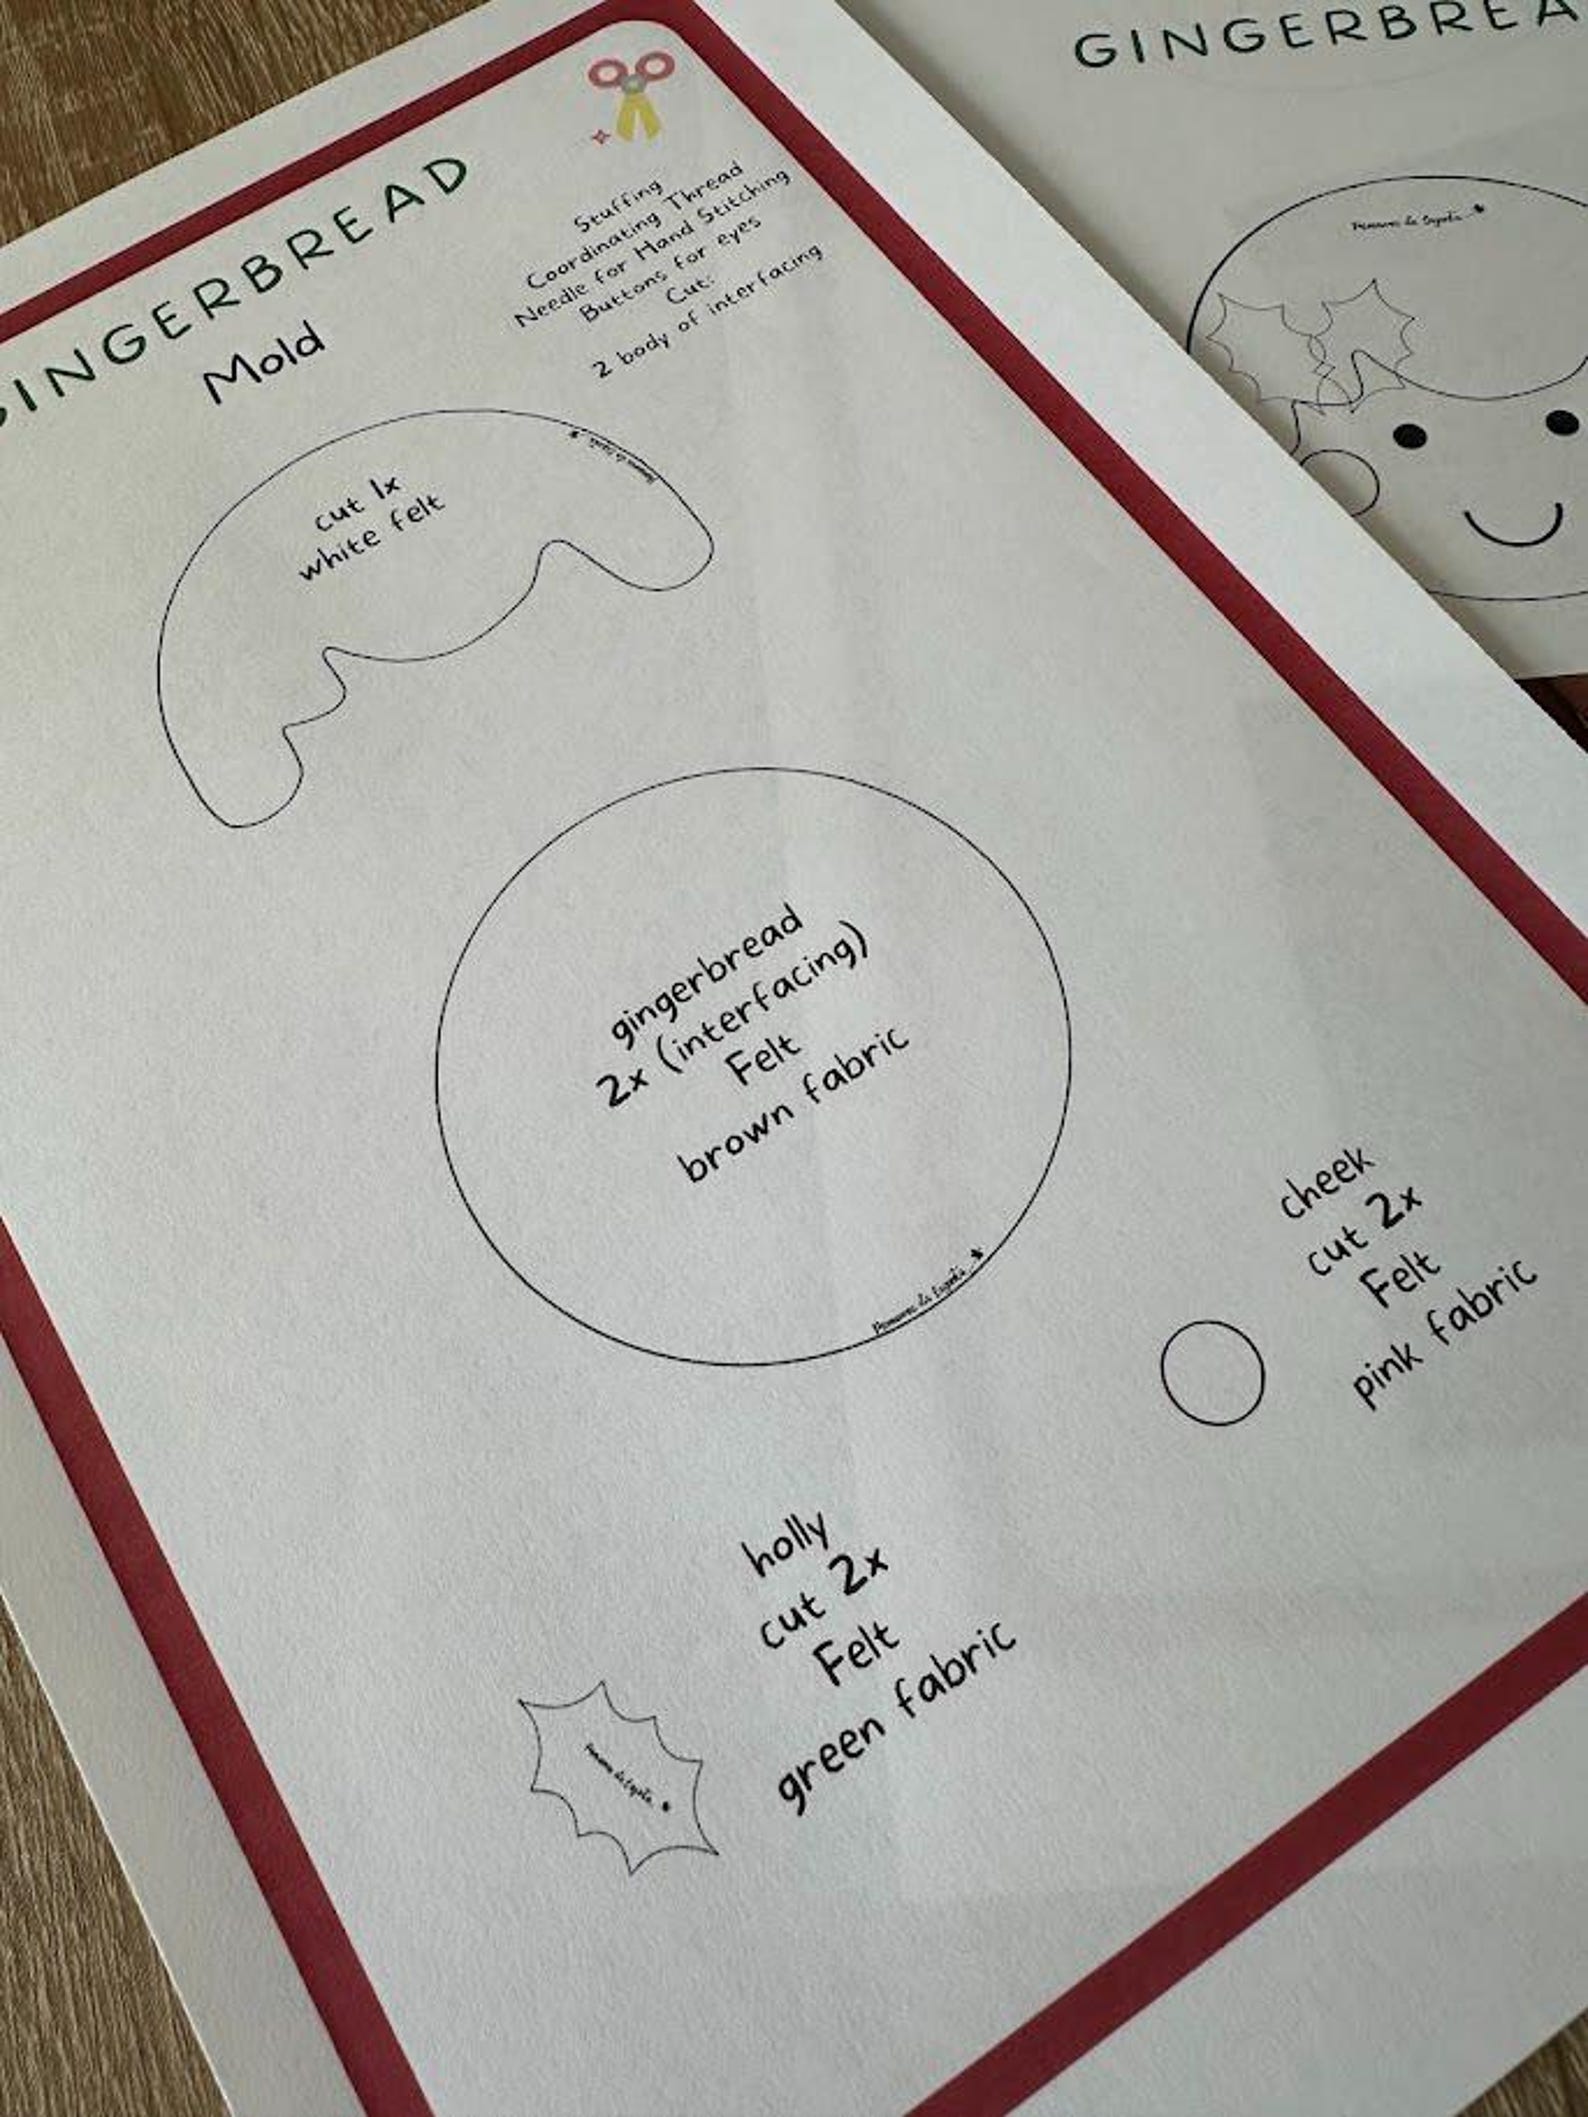 GINGERBREAD
Mold
Stuffing
Coordinating Thread
Needle for Hand Stitching
Buttons for eyes
Cut:
2 body of interfacing
cut 1x
white felt
gingerbread
2x (interfacing)
Felt
brown fabric
cheek
cut 2x
Felt
pink fabric
holly
cut 2x
Felt
green fabric
GINGERBREA